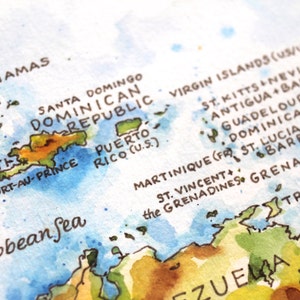 AMAS
SANTA DOMINGO
DOMINICAN
REPUBLIC
VIRGIN ISLANDS (US/
ST. KITTS + NEV
ANTIGUA + BA
GUADELOU
DOMINICA
ST. LUCIA
BARB
GRENA
PUERTO
RICO (U.S.)
RT-AU-PRINCE
MARTINIQUE (FR)
ST. VINCENT +
the GRENADINES
bbean Sea
EZUELA